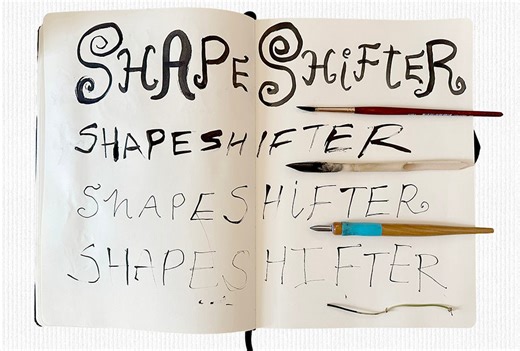 SHAPE SHiFtER
SHAPESHIFTER
SHAPESHiFTER
SHAPESHIFTER